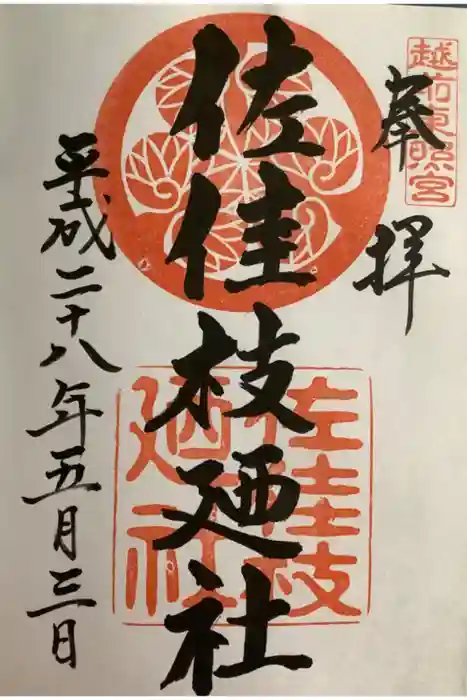 越前東照宮
奉拝
佐佳枝廼社
佐佳枝廼社
平成二十八年五月三日